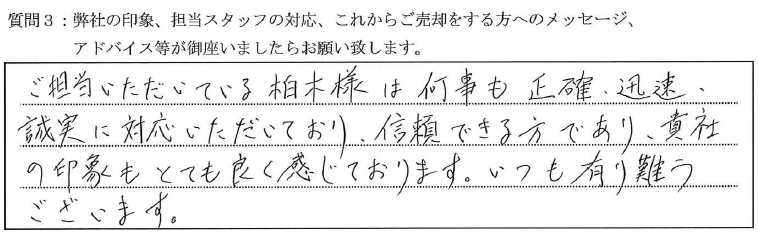 質問3：弊社の印象、担当スタッフの対応、これからご売却をする方へのメッセージ、
アドバイス等が御座いましたらお願い致します。
ご担当いただいている柏木様は何事も正確、迅速、
誠実に対応いただいており、信頼できる方であり、貴社
の印象もとても良く感じております。いつも有り難う
ございます。